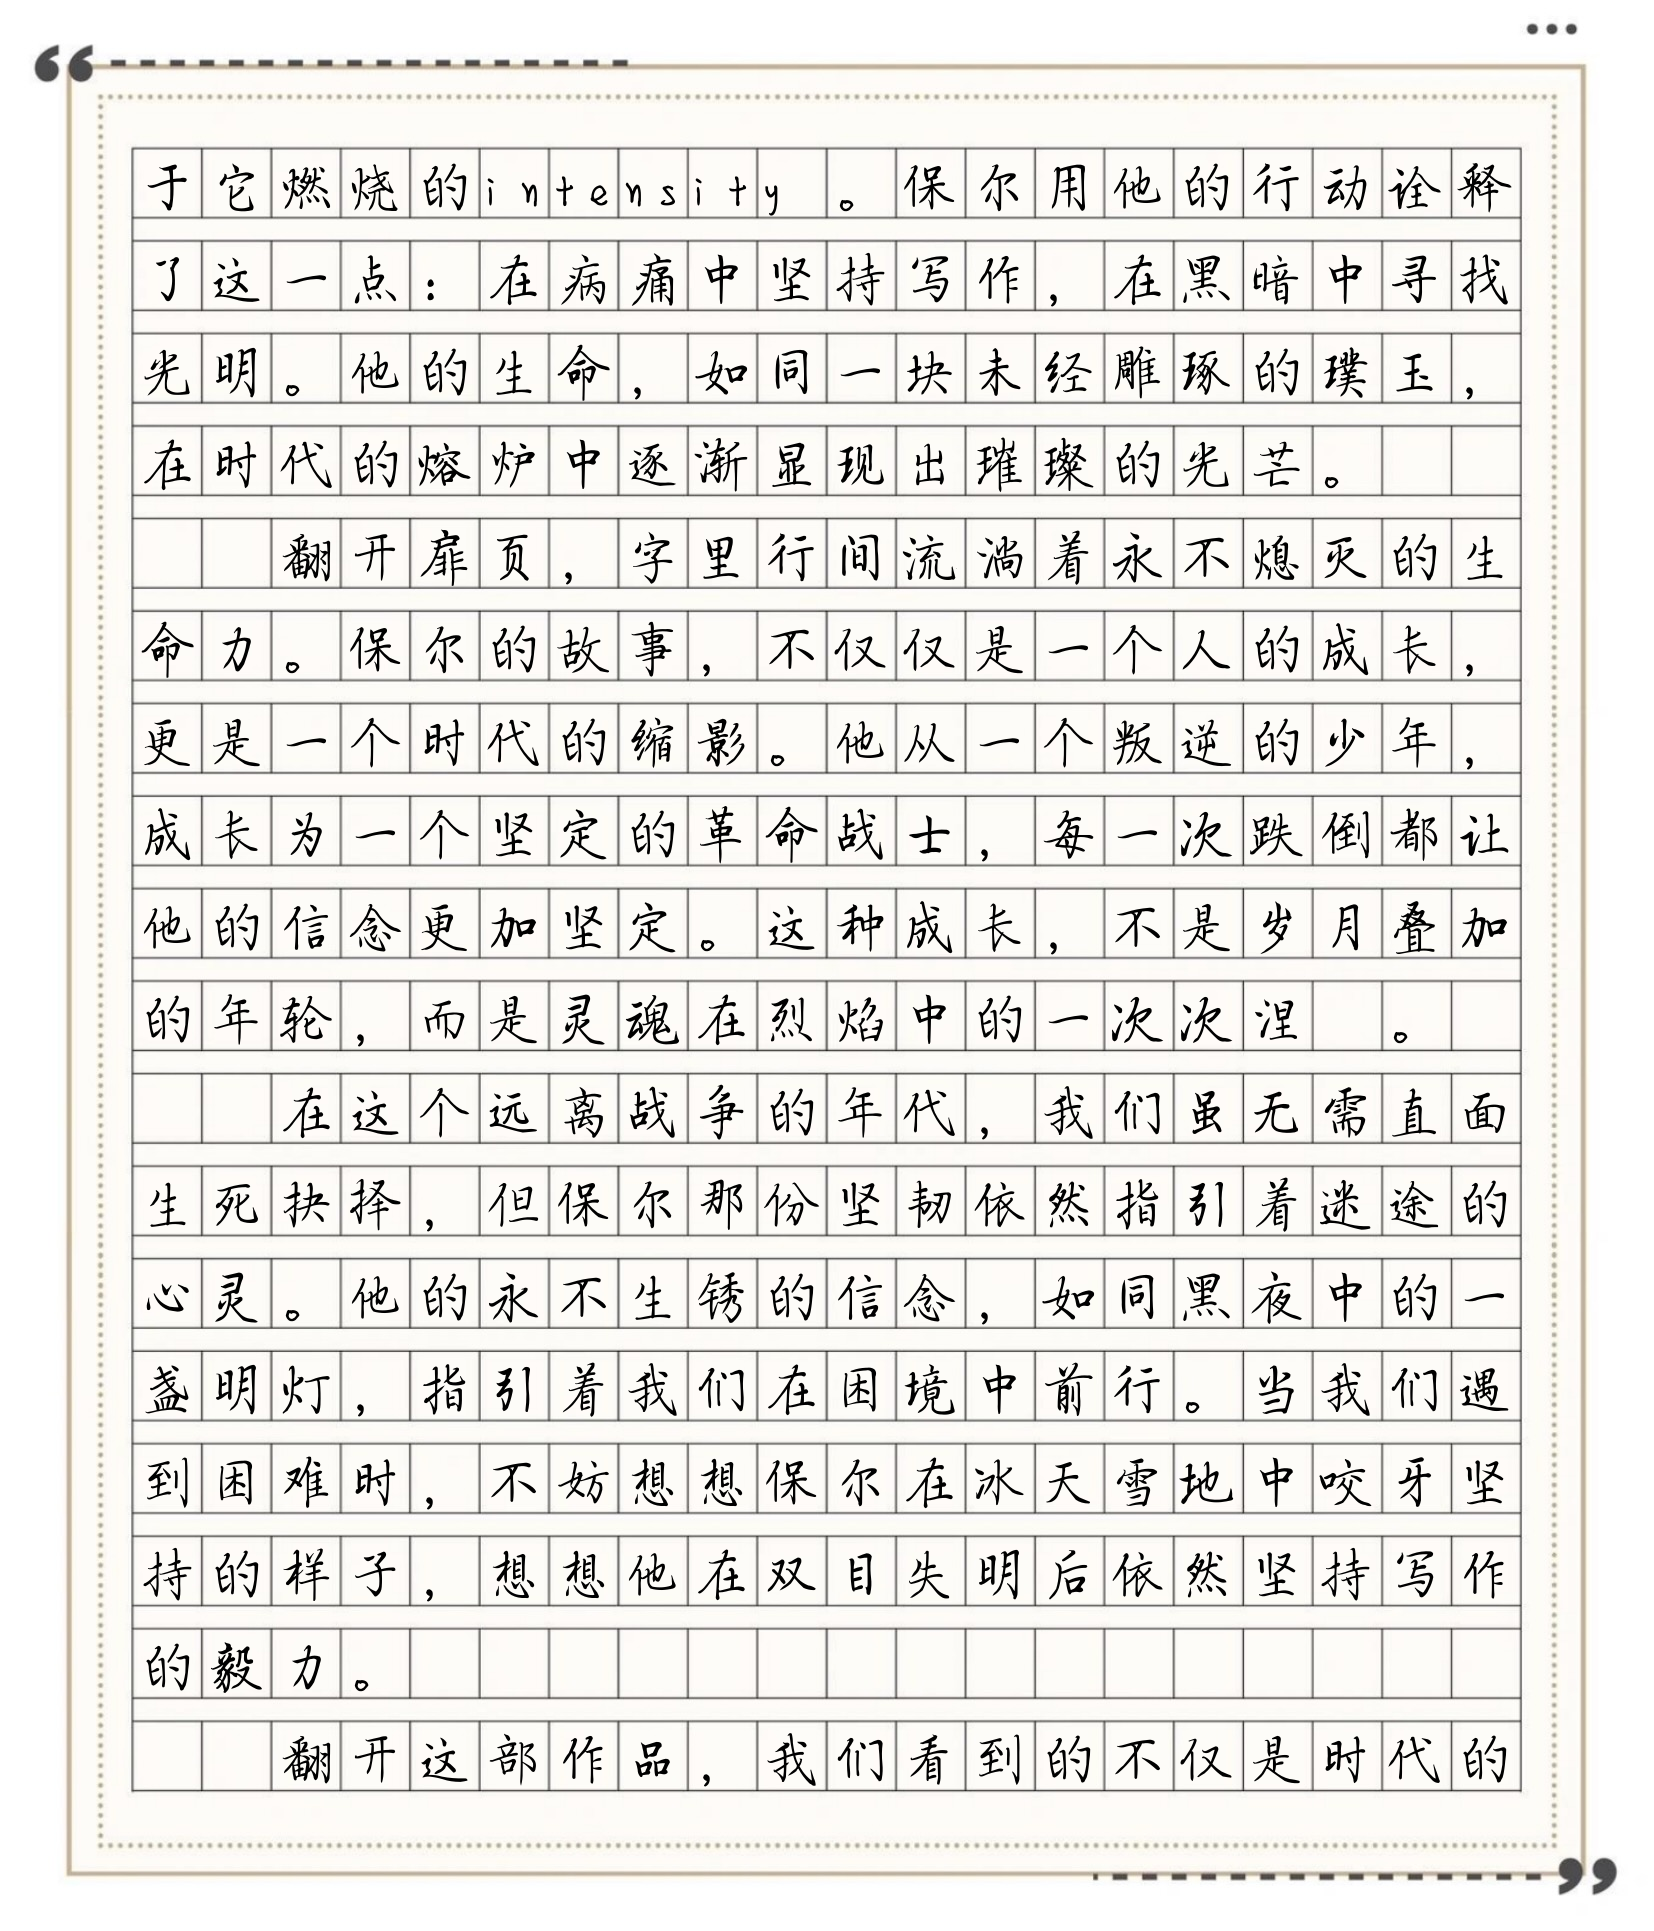 于它燃烧的intensity。保尔用他的行动诠释
了这一点：在病痛中坚持写作，在黑暗中寻找
光明。他的生命，如同一块未经雕琢的璞玉，
在时代的熔炉中逐渐显现出璀璨的光芒。
翻开扉页，字里行间流淌着永不熄灭的生
命力。保尔的故事，不仅仅是一个人的成长，
更是一个时代的缩影。他从一个叛逆的少年，
成长为一个坚定的革命战士，每一次跌倒都让
他的信念更加坚定。这种成长，不是岁月叠加
的年轮，而是灵魂在烈焰中的一次次涅 。
在这个远离战争的年代，我们虽无需直面
生死抉择，但保尔那份坚韧依然指引着迷途的
心灵。他的永不生锈的信念，如同黑夜中的一
盏明灯，指引着我们在困境中前行。当我们遇
到困难时，不妨想想保尔在冰天雪地中咬牙坚
持的样子，想想他在双目失明后依然坚持写作
的毅力。
翻开这部作品，我们看到的不仅是时代的